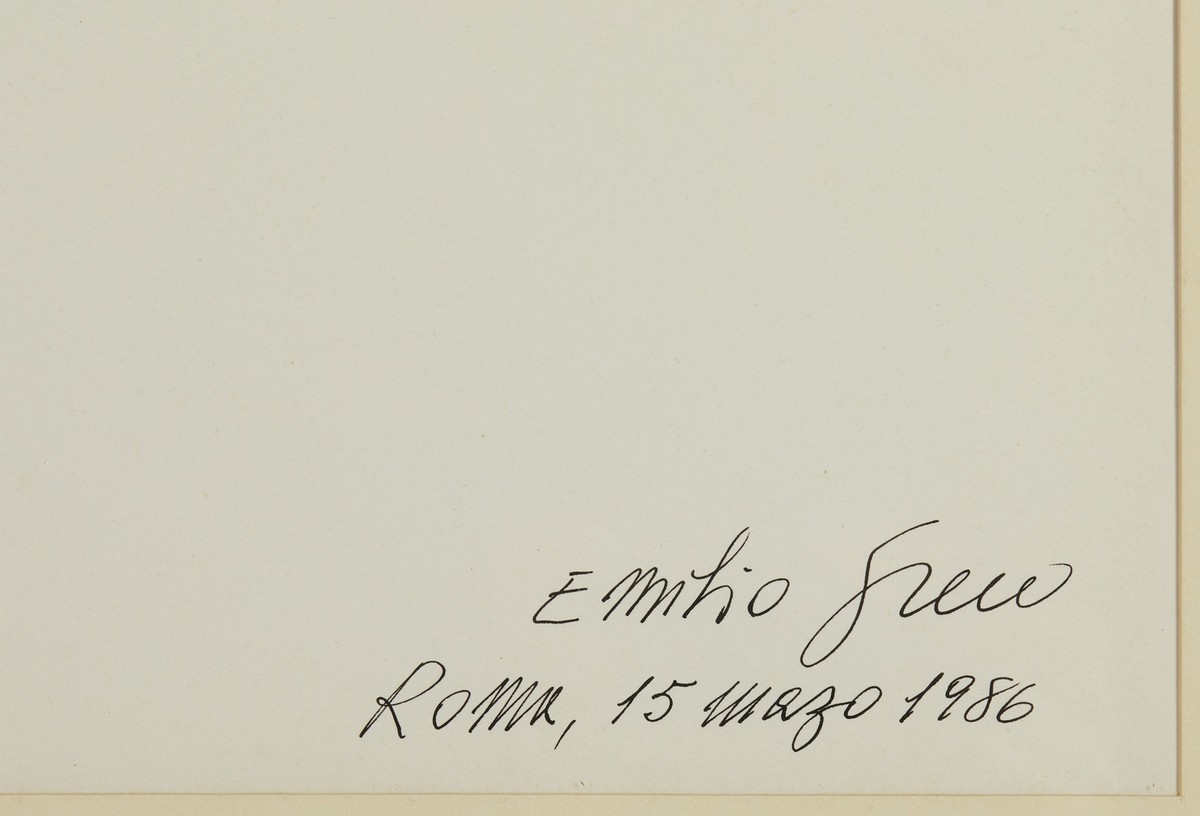 Emilio Greco
Roma, 15 mazo 1986